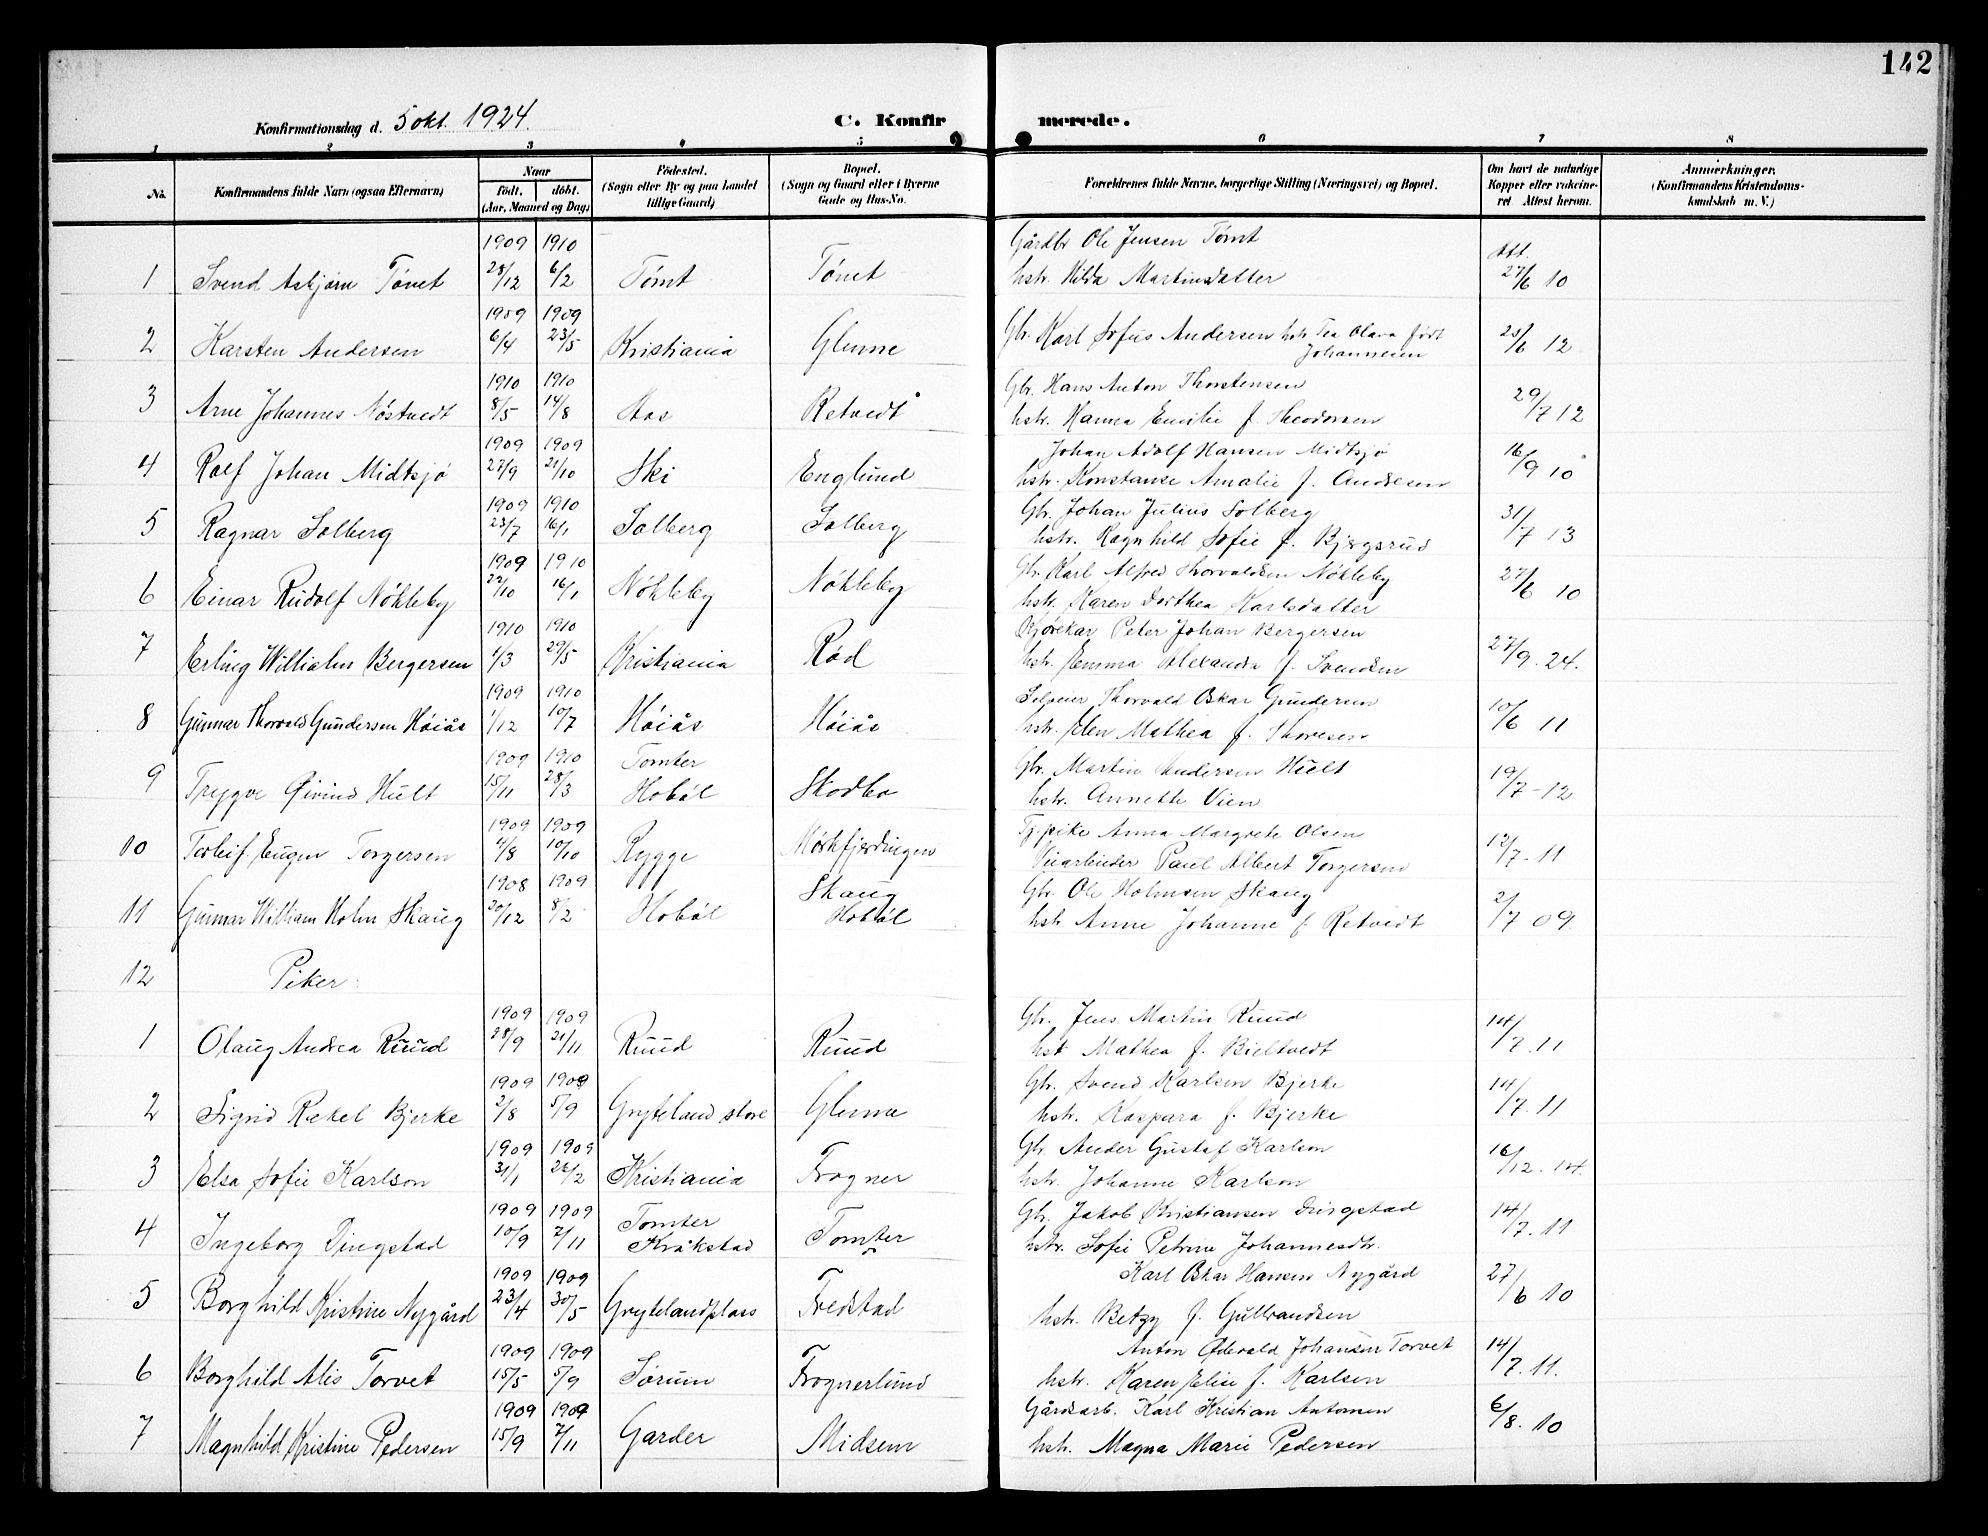 142
Konfirmationsdag d. 5 okt. 1924.
C. Konfirmerede.
1 2 3 4 5 6 7 8
No.
Konfirmandens fulde Navn (ogsaa Efternavn)
Naar
födt. döbt.
(Aar, Maaned og Dag)
Födested.
(Sogn eller By og paa Landet
tillige Gaard)
Bopæl.
(Sogn og Gaard eller i Byerne
Gade og Hus-No.
Forældrenes fulde Navne, borgerlige Stilling (Næringsvei) og Bopæl.
Om havt de naturlige
Kopper eller vakcine-
ret. Attest herom.
Anmerkninger.
(Konfirmandens Kristendoms-
kundskab m. V.)
1909 1910 Gårdbr Ole Jensen Tømt Att.
1 Svend Asbjørn Tømt 28/12 6/2 Tømt Tömt hstr. Hilda Martinsdatter 27/6 10
1909 1909
2 Karsten Andersen 6/4 23/5 Kristiania Glenne Gbr. Karl Sofus Andersen hstr. Tea Olava født 25/6 12
Johannesen
1910 1910 Gbr. Hans Anton Thorstensen
3 Arne Johannes Nöstvedt 8/5 14/8 Aas Retvedt hstr. Hanna Emilie f. Theodorsen 29/7 12
1909 1909 Johan Adolf Hansen Midtsjø
4 Rolf Johan Midtsjö 27/9 21/10 Ski Englund hstr. Konstanse Amalie f. Andresen 16/9 10
1909 1910 Gbr. Johan Julius Solberg
5 Ragnar Solberg 23/7 16/1 Solberg Solberg hstr. Ragnhild Sofie f. Bjergsrud 31/7 13
1909 1910 Gbr. Karl Alfred Thorvaldsen Nökleby
6 Einar Rudolf Nökleby 22/10 16/1 Nökleby Nökleby hstr. Karen Dorthea Karlsdatter 27/6 10
1910 1910 Kjørekar Peter Johan Bergersen
7 Erling Willialm Bergersen 4/3 29/5 Kristiania Röd hstr. Emma Alexandra f. Svendsen 27/9. 24.
1909 1910 Selveier Thorvald Oskar Gundersen
8 Gunnar Thorvald Gundersen Höiås 1/12 10/7 Höiås Höiås hstr. Elen Mathea f. Thoresen 10/6 11
1909 1910 Tomter Gbr. Martin Andersen Hult
9 Trygve Øivind Hult 15/11 28/3 Hoböl Skodbo hstr. Annette Vien 19/7-12
1909 1909 Tj.pike Anna Margrete Olsen
10 Torleif Eugen Torgersen 4/8 10/10 Rygge Mörkfjerdingen Veiarbeider Paul Albert Torgersen 12/7. 11
1908 1909 Skaug Gbr. Ole Holmsen Skaug
11 Gunnar William Holm Skaug 20/12 8/2 Hoböl Hoböl hstr. Anne Johanne f. Retvedt 2/7 09.
12 Piker:
1909 1909 Gbr. Jens Martin Ruud
1 Olaug Andrea Ruud 28/9 21/11 Ruud Ruud hst Mathea f. Bjeltvedt 14/7.11
1909 1909 Gbr. Svend Karlsen Bjerke
2 Sigrid Rakel Bjerke 2/8 5/9 Gryteland store Glenne hstr. Kaspara f. Bjerke 14/7.11
1909 1909 Gbr. Ander Gustaf Karlson
3 Elsa Sofie Karlson 31/1 28/2 Kristiania Frogner hstr. Johanne Karlson 16/12. 14.
1909 1909 Tomter Gbr. Jakob Kristiansen Dingstad
4 Ingeborg Dingstad 10/9 7/11 Kråkstad Tomter hstr. Sofie Petrine Johannesdtr. 14/7.11
1909 1909 Karl Oskar Hansen Nygård
5 Borghild Kristine Nygård 23/4 30/5 Grytelandplass Fredstad hstr. Betzy f. Gulbrandsen 27/6 10
1909 1909 Anton Odevald Johansen Torvet
6 Borghild Alis Torvet 15/5 5/9 Sörum Frognerlund hstr. Karen Elise f. Karlsen 14/7.11.
1909 1909 Gårdsarb. Karl Kristian Antonsen
7 Magnhild Kristine Pedersen 15/9 7/11 Garder Midsem hstr. Magna Marie Pedersen 6/8. 10